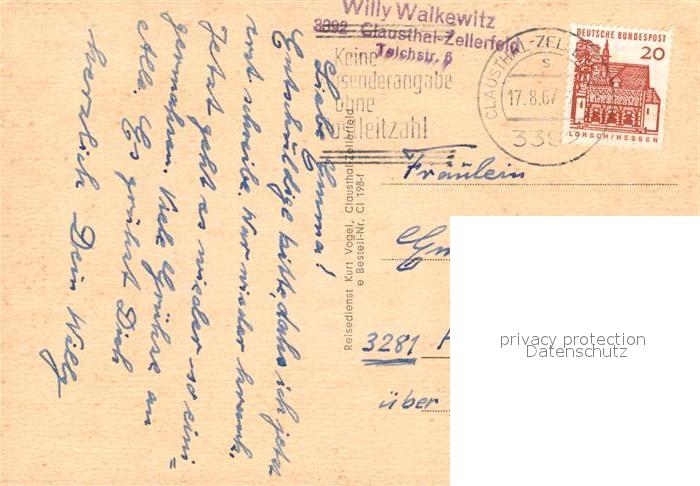 Willy Walkewitz
3392 Clausthal-Zellerfeld
Teichstr. 6
Keine
senderangabe
ohne
leitzahl
CLAUSTHAL-ZELLE
S
17.8.67
339
DEUTSCHE BUNDESPOST
20
LORSCH/HESSEN
Liebe Emma!
Entschuldige bitte, dahs ich jetzt
erst schreibe. War wieder krank.
Jetzt geht es wieder so eini=
germahsen. Viele Grühse an
Alle. Es grühst Dich
herzlich Dein Willy
Reisedienst Kurt Vogel, Clausthal-Zellerfeld
e Bestell-Nr. Cl 198-f
Fräulein
3281
über
privacy protection
Datenschutz